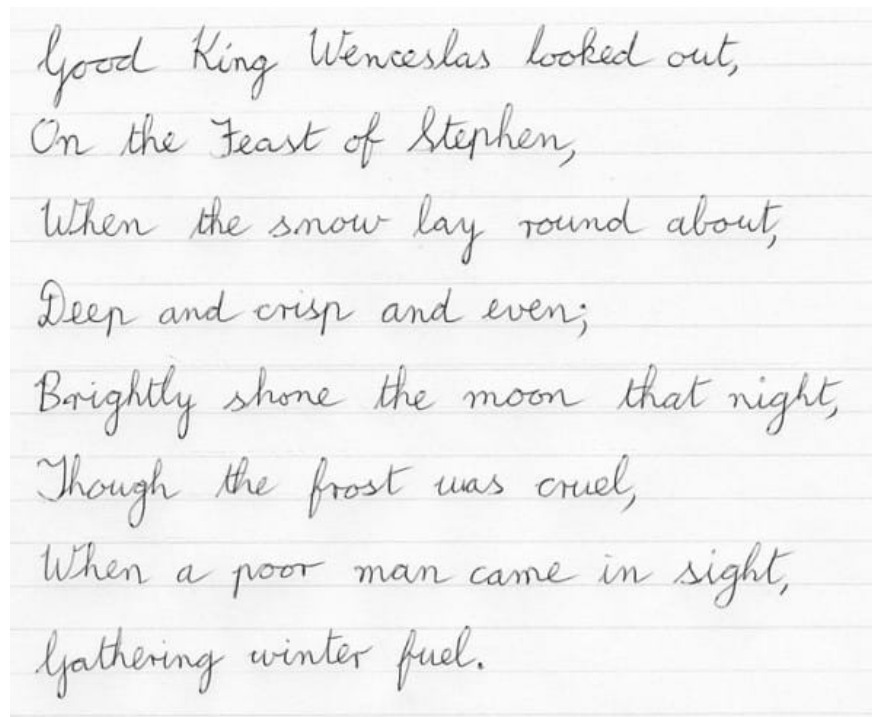 Good King Wenceslas looked out,
On the Feast of Stephen,
When the snow lay round about,
Deep and crisp and even;
Brightly shone the moon that night,
Though the frost was cruel,
When a poor man came in sight,
Gathering winter fuel.